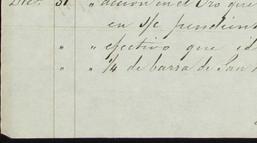 Dic. 31 " accion en el Oro que
en s/c pendient
" " efectivo que id
" " 1/4 de barra de San